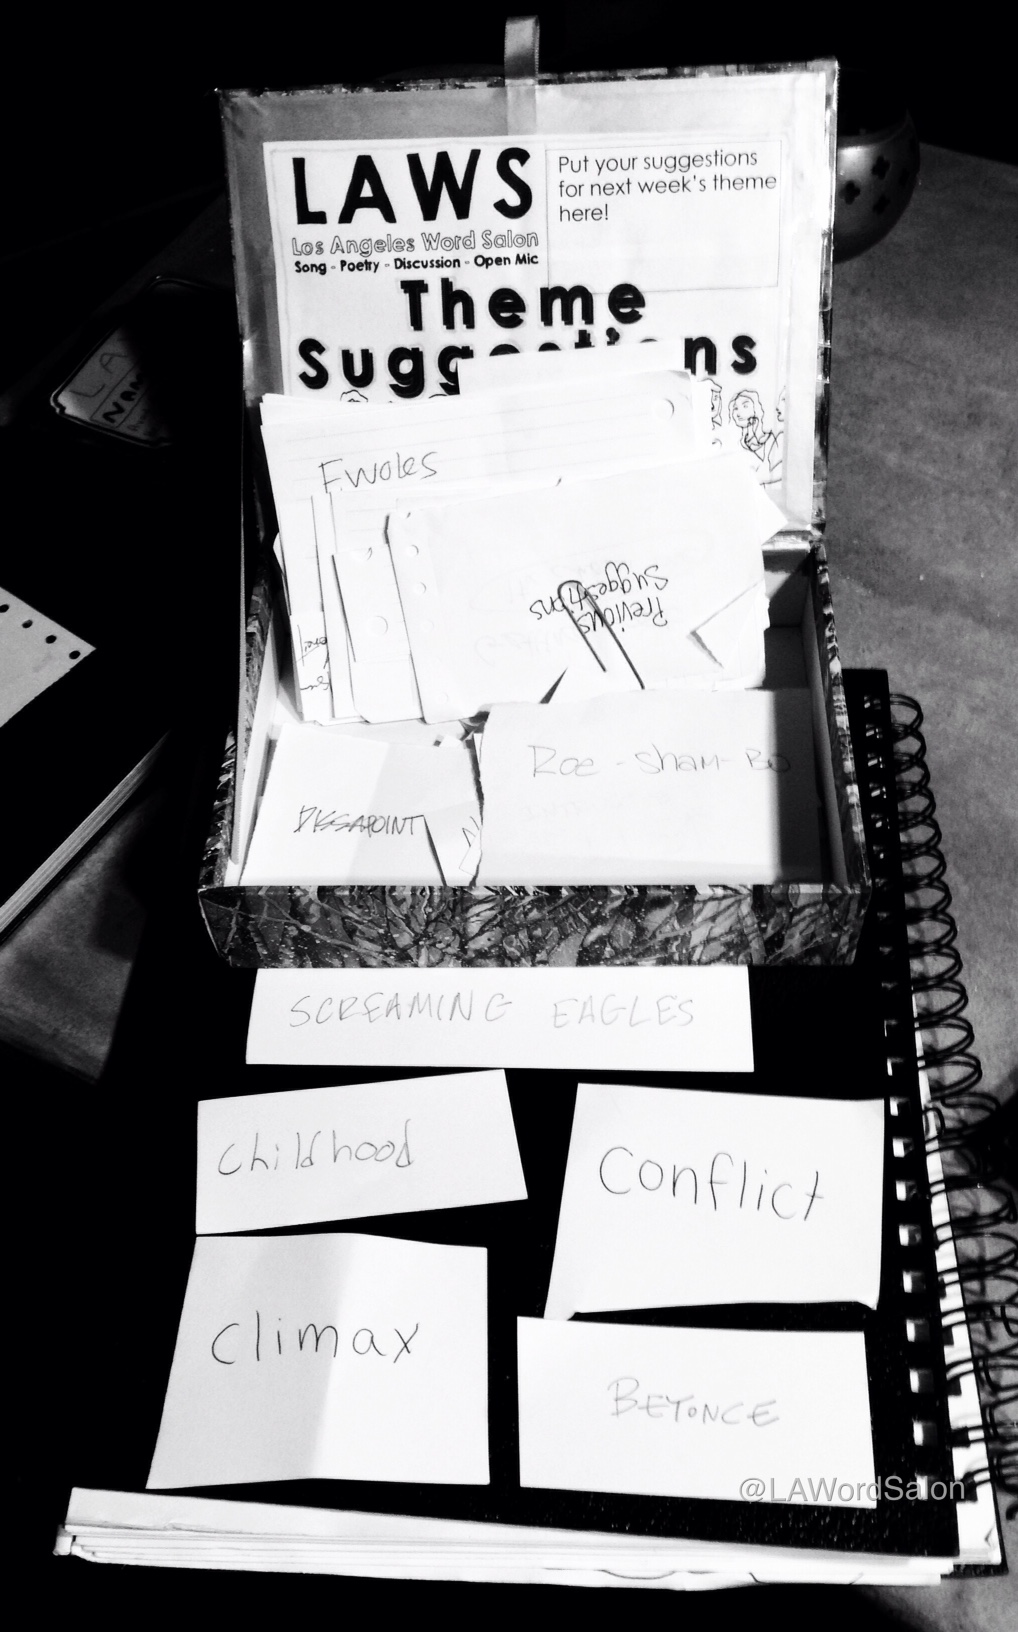 LAWS
Los Angeles Word Salon
Song - Poetry - Discussion - Open Mic
Put your suggestions
for next week's theme
here!
Theme
Ewoles
Previous
Suggestions
Roe-Sham-Bo
DISSAPOINT
SCREAMING EAGLES
childhood
Conflict
climax
BEYONCE
@LAWordSalon